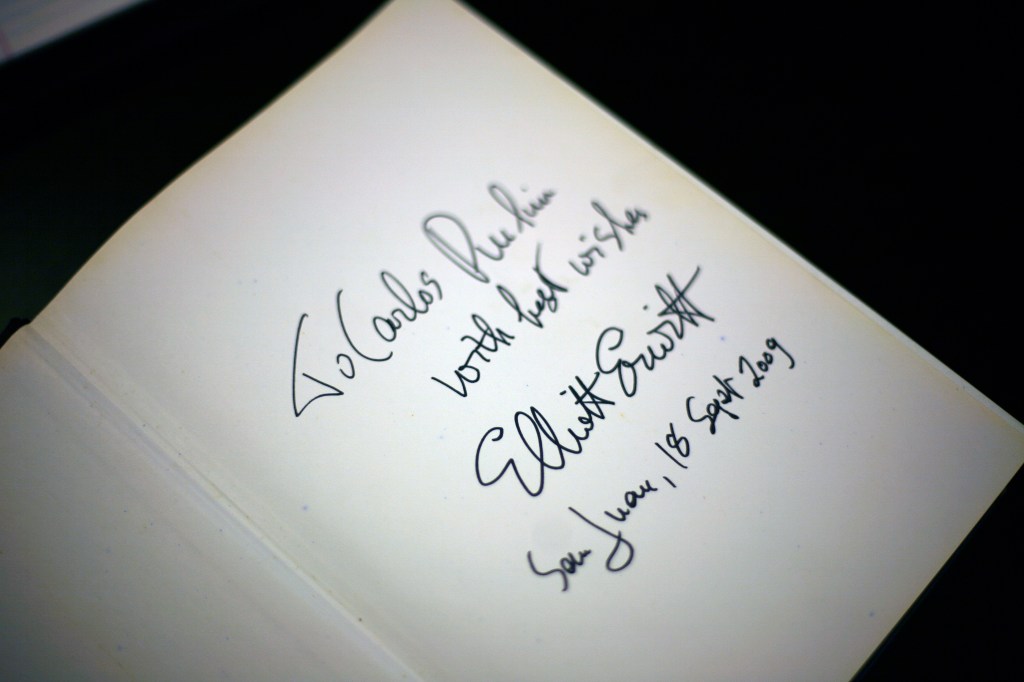 To Carlos
with best wishes
Elliott Erwitt
San Juan, 18 Sept 2009